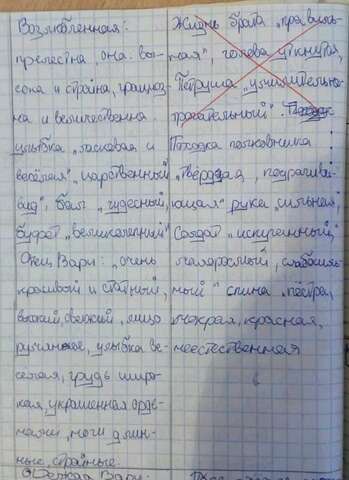 Возлюбленная:
прелестна, она вы-
сока и стройна, грациоз-
на и величественна.
улыбка „ласковая и
весёлая", „царственный
вид", бал „чудесный,
буфет „великолепный"
Отец Вари: „очень
красивый и статный,
высокий, свежий, лицо
румяное, улыбка ве-
селая, грудь широ-
кая, украшенная орде-
нами, ноги длин-
ные, стройные.
Одежда Вари:
Жизнь брата „правиль-
ная", голова уткнутая,
Петруша „изумительно
трогательный".
Походка полковника:
„твёрдая, подрагиваю-
щая" рука „сильная"
Солдат „искупленный"
малорослый, слабосиль-
ный" спина „пёстрая,
мокрая, красная,
неестественная